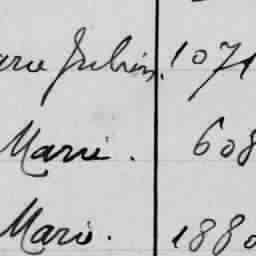 Julien. 1071
Marie. 608
Marie. 1880